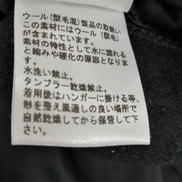 ウール(獣毛混)製品の取扱い
この素材にはウール(獣毛)
が含まれています。
素材の特性として水に濡れる
と縮みや硬化の原因となりま
す。
水洗い禁止。
タンブラー乾燥禁止。
着用後はハンガーに掛ける等、
形を整え風通しの良い場所で
自然乾燥してから保管して下さ
い。